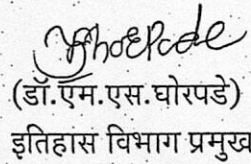 Ghorpade
(डॉ.एम.एस.घोरपडे)
इतिहास विभाग प्रमुख